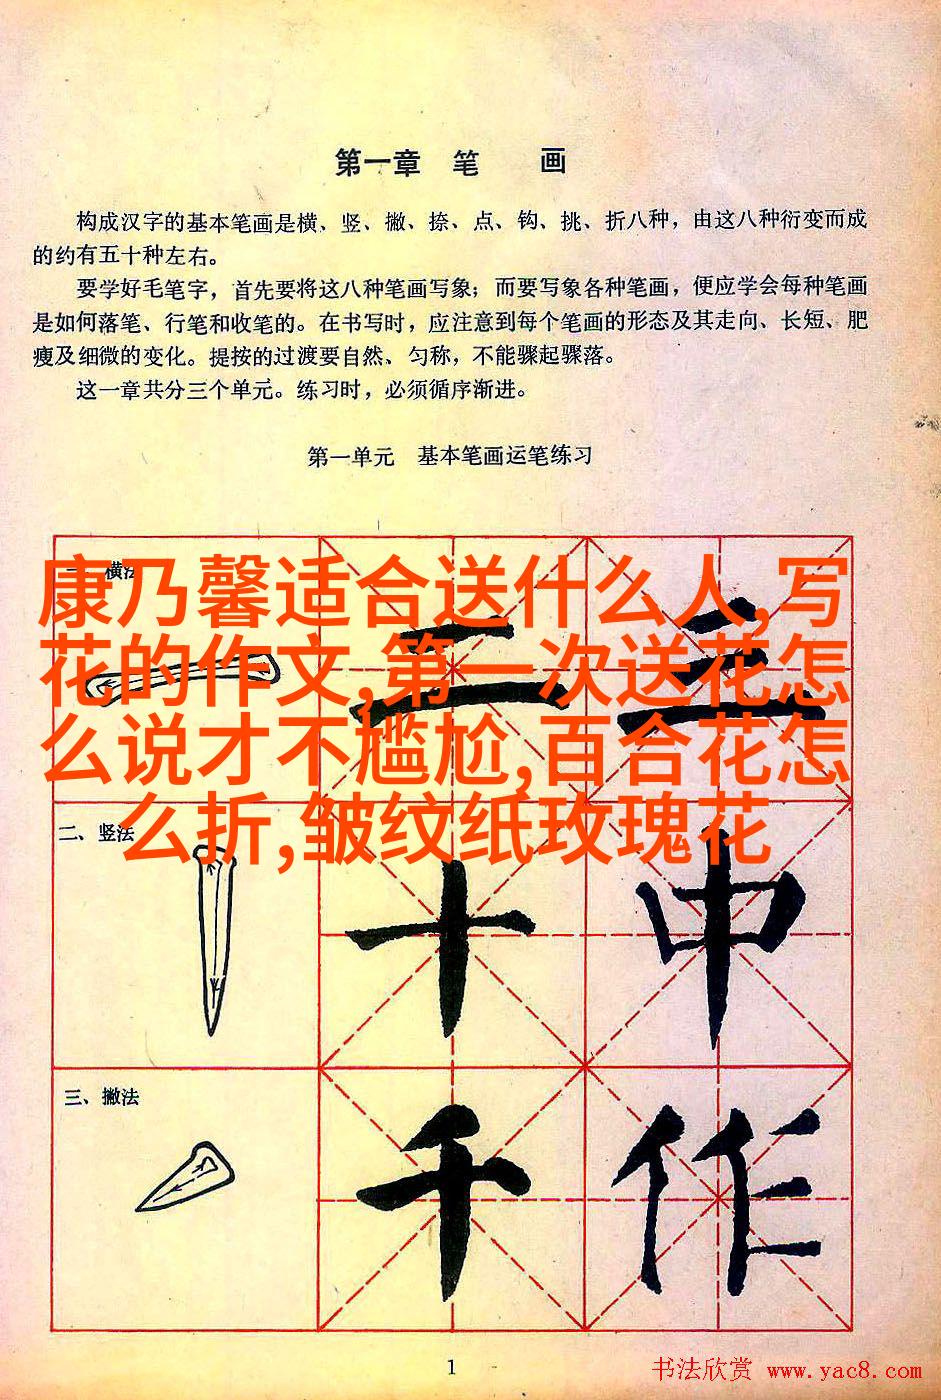 第一章 笔 画
构成汉字的基本笔画是横、竖、撇、捺、点、钩、挑、折八种，由这八种衍变而成
的约有五十种左右。
要学好毛笔字，首先要将这八种笔画写象；而要写象各种笔画，便应学会每种笔画
是如何落笔、行笔和收笔的。在书写时，应注意到每个笔画的形态及其走向、长短、肥
瘦及细微的变化。提按的过渡要自然、匀称，不能骤起骤落。
这一章共分三个单元。练习时，必须循序渐进。
第一单元 基本笔画运笔练习
一、横法
二 三
康乃馨适合送什么人,写
花的作文,第一次送花怎
么说才不尴尬,百合花怎
么折,皱纹纸玫瑰花
二、竖法
十 中
三、撇法
千 作
1
书法欣赏 www.yac8.com